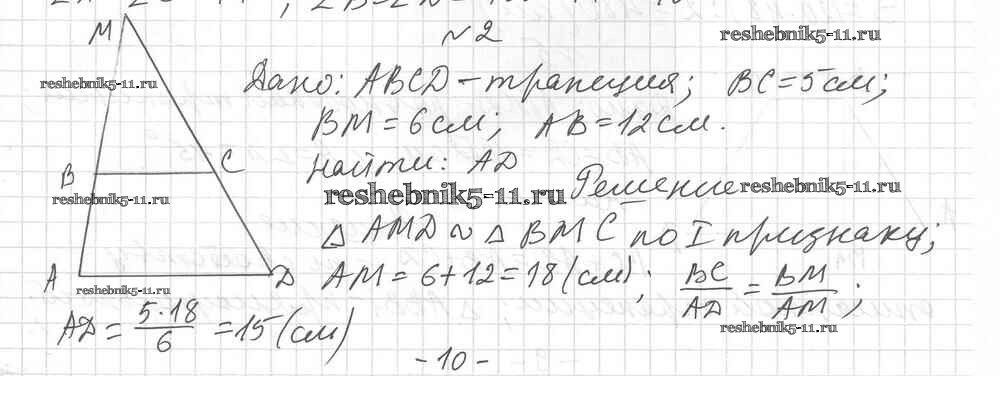 №2
reshebnik5-11.ru
M
reshebnik5-11.ru
Дано: ABCD – трапеция; BC = 5 см;
BM = 6 см; AB = 12 см.
Найти: AD
B
C
reshebnik5-11.ru
reshebnik5-11.ru
Решение
reshebnik5-11.ru
△ AMD ~ △ BMC по I признаку;
A
D
AM = 6 + 12 = 18 (см); BC/AD = BM/AM;
reshebnik5-11.ru
reshebnik5-11.ru
AD = 5·18/6 = 15 (см)
- 10 -